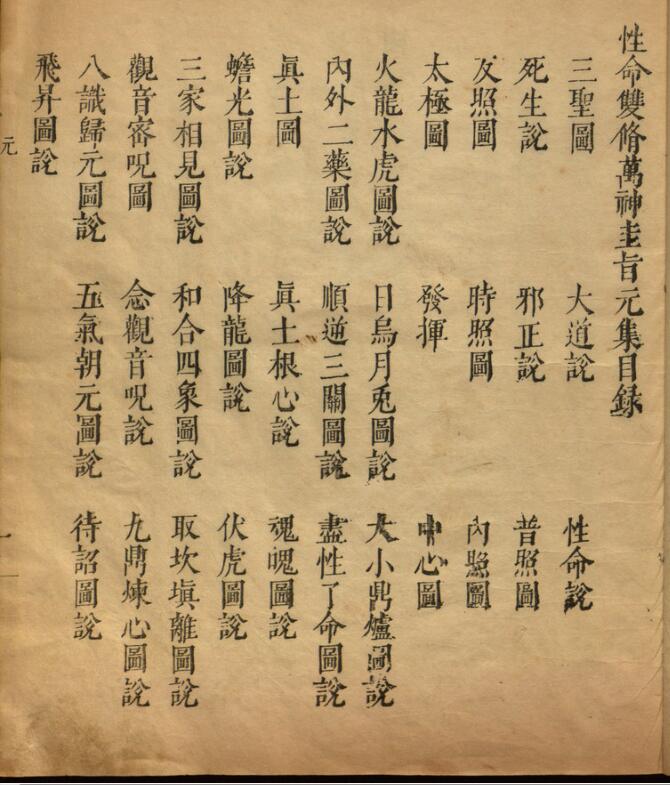 性命雙脩萬神圭旨元集目録
三聖圖 大道說 性命說
死生說 邪正說 普照圖
反照圖 時照圖 內照圖
太極圖 發揮 中心圖
火龍水虎圖說 日烏月兎圖說 大小鼎爐圖說
內外二藥圖說 順逆三關圖說 盡性了命圖說
眞土圖 眞土根心說 魂魄圖說
蟾光圖說 降龍圖說 伏虎圖說
三家相見圖說 和合四象圖說 取坎塡離圖說
觀音密呪圖 念觀音呪說 九鼎煉心圖說
八識歸元圖說 五氣朝元圖說 待詔圖說
飛昇圖說
元
一